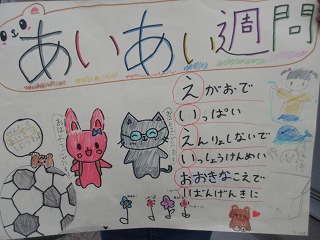 あいあい週間
えがおで
いっぱい
えんりょしないで
いっしょうけんめい
おおきなこえで
1ばんげんきに